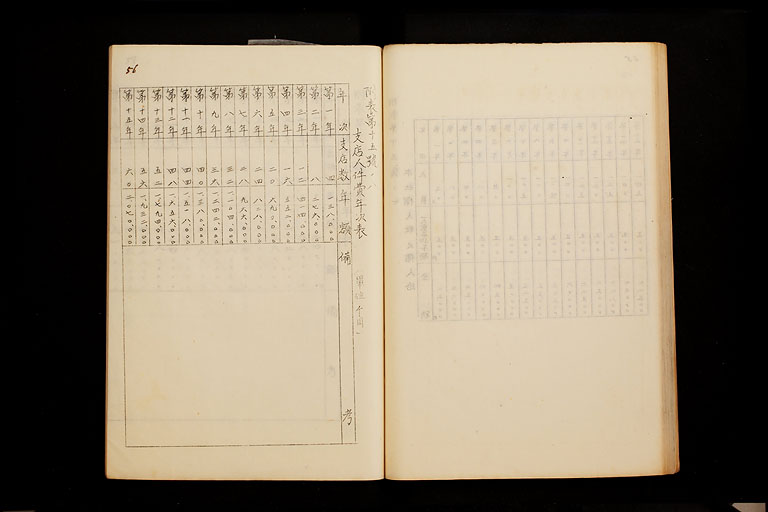 56
附表第十五號ノ八
支店人件費年次表
年次 支店數 年額 備考
第一年 四 一三八.〇〇〇
第二年 八 二七六.〇〇〇
第三年 一二 四一四.〇〇〇
第四年 一六 五五二.〇〇〇
第五年 二〇 六九〇.〇〇〇
第六年 二四 八二八.〇〇〇
第七年 二八 九六六.〇〇〇
第八年 三二 一一〇四.〇〇〇
第九年 三六 一二四二.〇〇〇
第十年 四〇 一三八〇.〇〇〇
第十一年 四四 一五一八.〇〇〇
第十二年 四八 一六五六.〇〇〇
第十三年 五二 一七九四.〇〇〇
第十四年 五六 一九三二.〇〇〇
第十五年 六〇 二〇七〇.〇〇〇